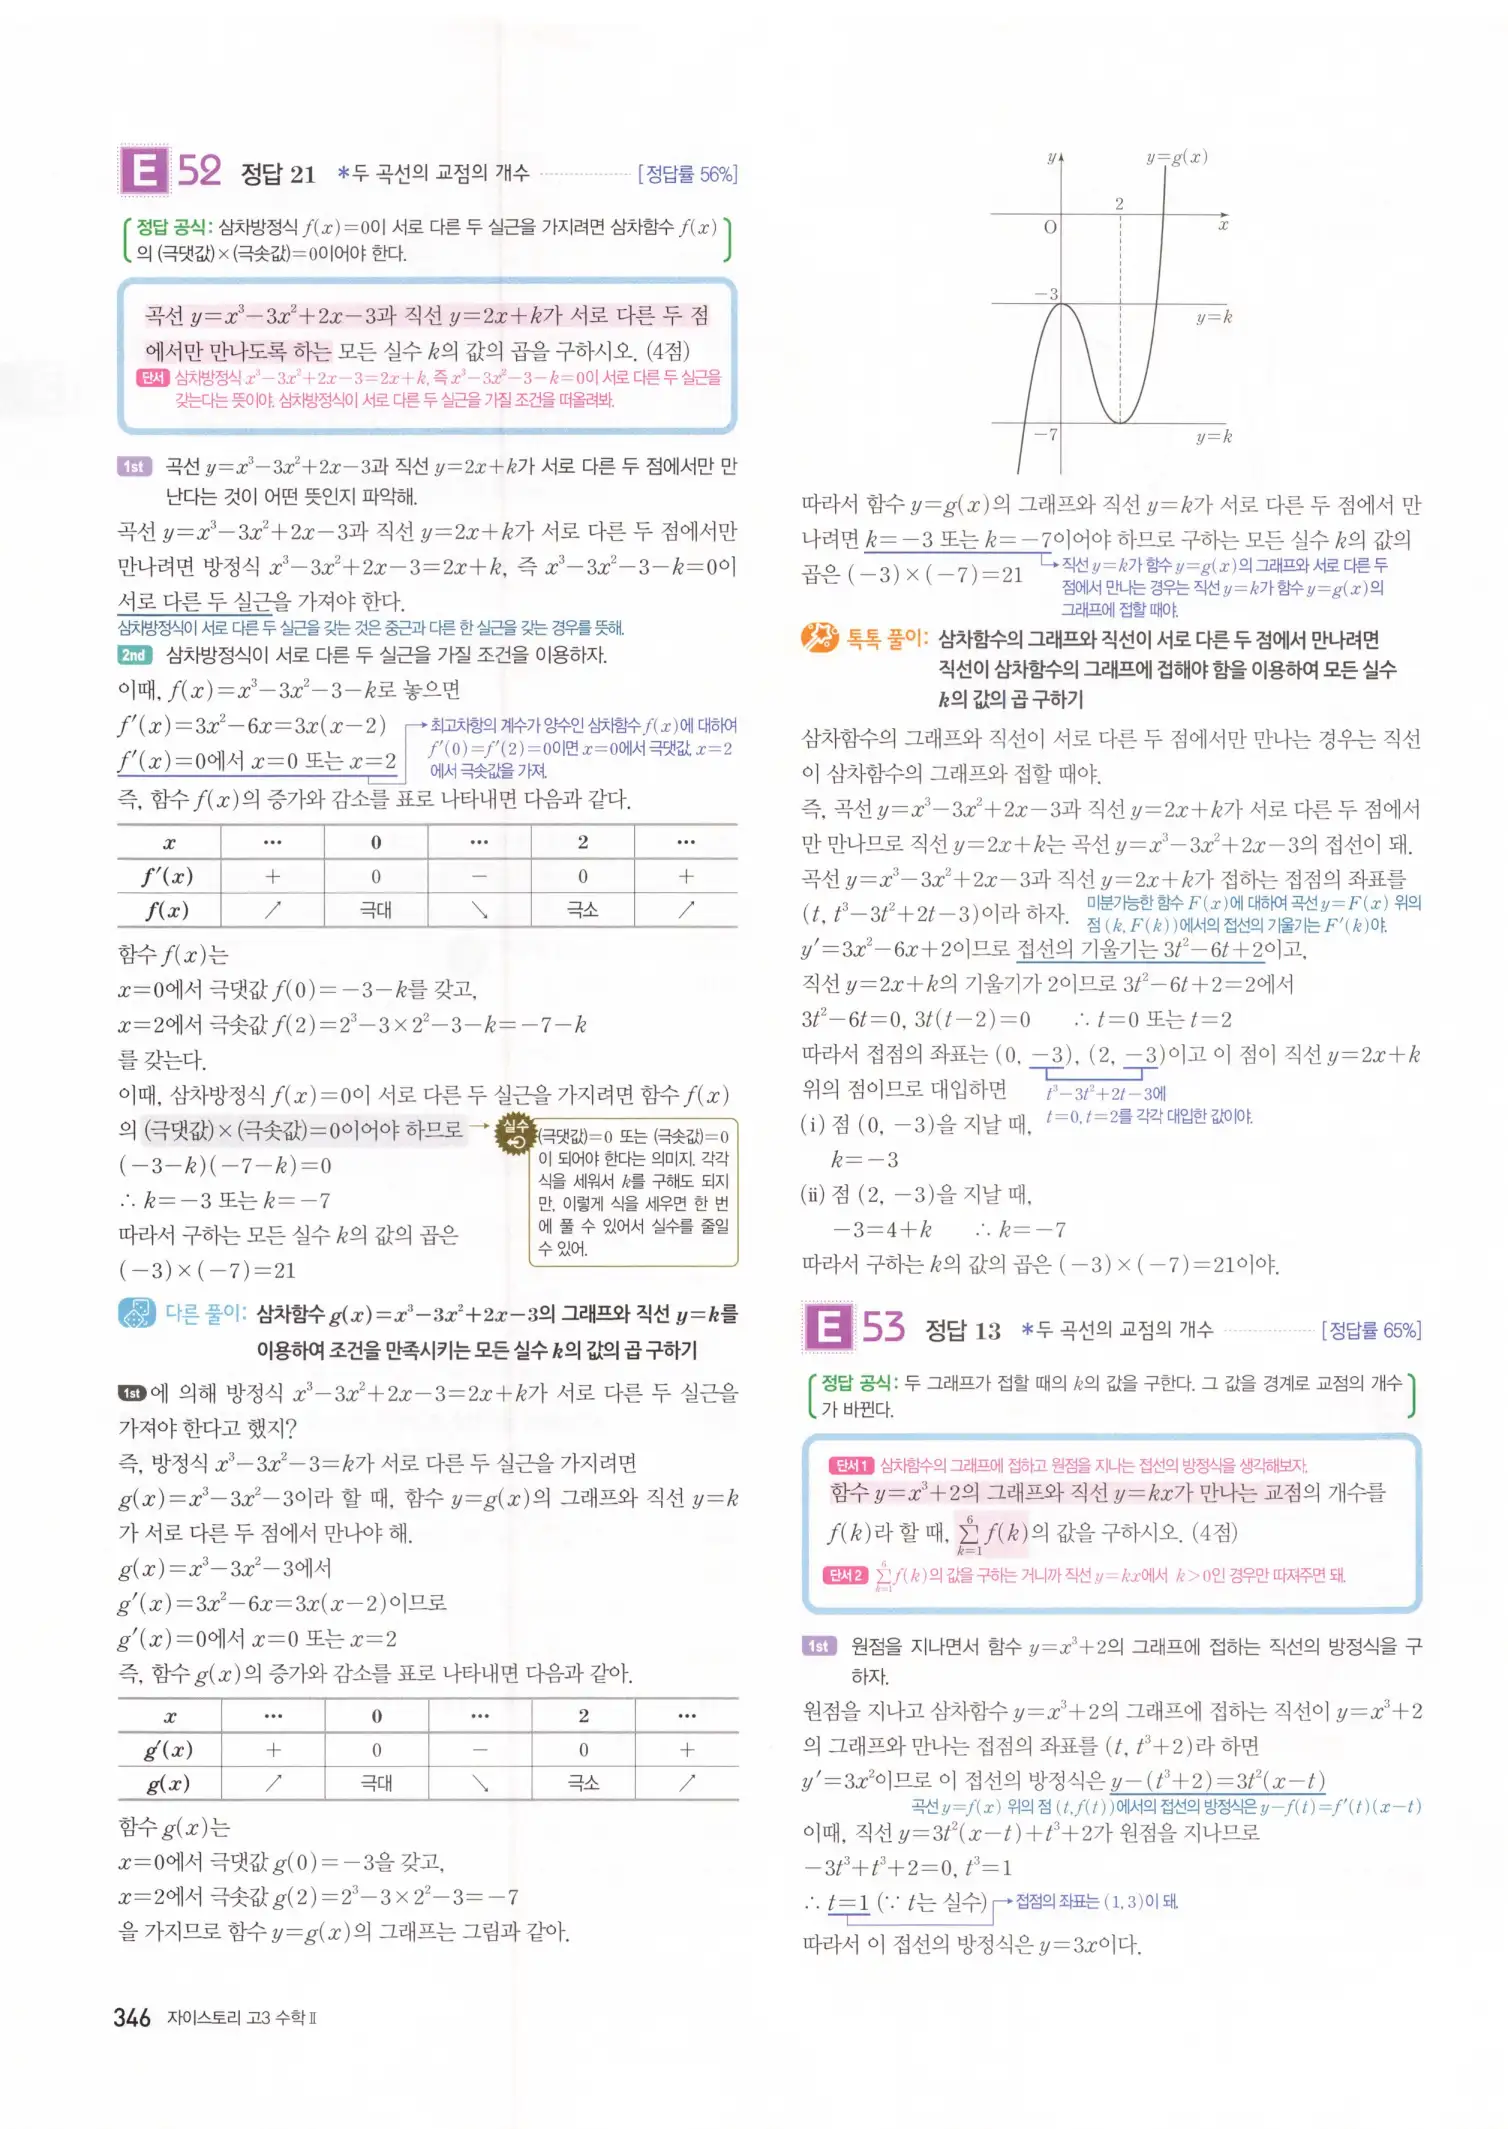 E 52 정답 21 *두 곡선의 교점의 개수 [정답률 56%]
정답 공식: 삼차방정식 f(x)=0이 서로 다른 두 실근을 가지려면 삼차함수 f(x)
의 (극댓값)×(극솟값)=0이어야 한다.
곡선 y=x³-3x²+2x-3과 직선 y=2x+k가 서로 다른 두 점
에서만 만나도록 하는 모든 실수 k의 값의 곱을 구하시오. (4점)
단서 삼차방정식 x³-3x²+2x-3=2x+k, 즉 x³-3x²-3-k=0이 서로 다른 두 실근을
갖는다는 뜻이야. 삼차방정식이 서로 다른 두 실근을 가질 조건을 떠올려봐.
1st 곡선 y=x³-3x²+2x-3과 직선 y=2x+k가 서로 다른 두 점에서만 만
난다는 것이 어떤 뜻인지 파악해.
곡선 y=x³-3x²+2x-3과 직선 y=2x+k가 서로 다른 두 점에서만
만나려면 방정식 x³-3x²+2x-3=2x+k, 즉 x³-3x²-3-k=0이
서로 다른 두 실근을 가져야 한다.
삼차방정식이 서로 다른 두 실근을 갖는 것은 중근과 다른 한 실근을 갖는 경우를 뜻해.
2nd 삼차방정식이 서로 다른 두 실근을 가질 조건을 이용하자.
이때, f(x)=x³-3x²-3-k로 놓으면
f′(x)=3x²-6x=3x(x-2)
f′(x)=0에서 x=0 또는 x=2
→ 최고차항의 계수가 양수인 삼차함수 f(x)에 대하여
f′(0)=f′(2)=0이면 x=0에서 극댓값, x=2
에서 극솟값을 가져.
즉, 함수 f(x)의 증가와 감소를 표로 나타내면 다음과 같다.
x … 0 … 2 …
f′(x) + 0 - 0 +
f(x) ↗ 극대 ↘ 극소 ↗
함수 f(x)는
x=0에서 극댓값 f(0)=-3-k를 갖고,
x=2에서 극솟값 f(2)=2³-3×2²-3-k=-7-k
를 갖는다.
이때, 삼차방정식 f(x)=0이 서로 다른 두 실근을 가지려면 함수 f(x)
의 (극댓값)×(극솟값)=0이어야 하므로 →
(-3-k)(-7-k)=0
∴ k=-3 또는 k=-7
따라서 구하는 모든 실수 k의 값의 곱은
(-3)×(-7)=21
실수
(극댓값)=0 또는 (극솟값)=0
이 되어야 한다는 의미지. 각각
식을 세워서 k를 구해도 되지
만, 이렇게 식을 세우면 한 번
에 풀 수 있어서 실수를 줄일
수 있어.
다른 풀이: 삼차함수 g(x)=x³-3x²+2x-3의 그래프와 직선 y=k를
이용하여 조건을 만족시키는 모든 실수 k의 값의 곱 구하기
1st에 의해 방정식 x³-3x²+2x-3=2x+k가 서로 다른 두 실근을
가져야 한다고 했지?
즉, 방정식 x³-3x²-3=k가 서로 다른 두 실근을 가지려면
g(x)=x³-3x²-3이라 할 때, 함수 y=g(x)의 그래프와 직선 y=k
가 서로 다른 두 점에서 만나야 해.
g(x)=x³-3x²-3에서
g′(x)=3x²-6x=3x(x-2)이므로
g′(x)=0에서 x=0 또는 x=2
즉, 함수 g(x)의 증가와 감소를 표로 나타내면 다음과 같아.
x … 0 … 2 …
g′(x) + 0 - 0 +
g(x) ↗ 극대 ↘ 극소 ↗
함수 g(x)는
x=0에서 극댓값 g(0)=-3을 갖고,
x=2에서 극솟값 g(2)=2³-3×2²-3=-7
을 가지므로 함수 y=g(x)의 그래프는 그림과 같아.
y y=g(x)
2
O x
-3
y=k
-7 y=k
따라서 함수 y=g(x)의 그래프와 직선 y=k가 서로 다른 두 점에서 만
나려면 k=-3 또는 k=-7이어야 하므로 구하는 모든 실수 k의 값의
곱은 (-3)×(-7)=21
→ 직선 y=k가 함수 y=g(x)의 그래프와 서로 다른 두
점에서 만나는 경우는 직선 y=k가 함수 y=g(x)의
그래프에 접할 때야.
톡톡 풀이: 삼차함수의 그래프와 직선이 서로 다른 두 점에서 만나려면
직선이 삼차함수의 그래프에 접해야 함을 이용하여 모든 실수
k의 값의 곱 구하기
삼차함수의 그래프와 직선이 서로 다른 두 점에서만 만나는 경우는 직선
이 삼차함수의 그래프와 접할 때야.
즉, 곡선 y=x³-3x²+2x-3과 직선 y=2x+k가 서로 다른 두 점에서
만 만나므로 직선 y=2x+k는 곡선 y=x³-3x²+2x-3의 접선이 돼.
곡선 y=x³-3x²+2x-3과 직선 y=2x+k가 접하는 접점의 좌표를
(t, t³-3t²+2t-3)이라 하자.
미분가능한 함수 F(x)에 대하여 곡선 y=F(x) 위의
점 (k, F(k))에서의 접선의 기울기는 F′(k)야.
y′=3x²-6x+2이므로 접선의 기울기는 3t²-6t+2이고,
직선 y=2x+k의 기울기가 2이므로 3t²-6t+2=2에서
3t²-6t=0, 3t(t-2)=0 ∴ t=0 또는 t=2
따라서 접점의 좌표는 (0, -3), (2, -3)이고 이 점이 직선 y=2x+k
위의 점이므로 대입하면
t³-3t²+2t-3에
t=0, t=2를 각각 대입한 값이야.
(i) 점 (0, -3)을 지날 때,
k=-3
(ii) 점 (2, -3)을 지날 때,
-3=4+k ∴ k=-7
따라서 구하는 k의 값의 곱은 (-3)×(-7)=21이야.
E 53 정답 13 *두 곡선의 교점의 개수 [정답률 65%]
정답 공식: 두 그래프가 접할 때의 k의 값을 구한다. 그 값을 경계로 교점의 개수
가 바뀐다.
단서1 삼차함수의 그래프에 접하고 원점을 지나는 접선의 방정식을 생각해보자.
함수 y=x³+2의 그래프와 직선 y=kx가 만나는 교점의 개수를
f(k)라 할 때, ∑_{k=1}^{6} f(k)의 값을 구하시오. (4점)
단서2 ∑_{k=1}^{6} f(k)의 값을 구하는 거니까 직선 y=kx에서 k>0인 경우만 따져주면 돼.
1st 원점을 지나면서 함수 y=x³+2의 그래프에 접하는 직선의 방정식을 구
하자.
원점을 지나고 삼차함수 y=x³+2의 그래프에 접하는 직선이 y=x³+2
의 그래프와 만나는 접점의 좌표를 (t, t³+2)라 하면
y′=3x²이므로 이 접선의 방정식은 y-(t³+2)=3t²(x-t)
곡선 y=f(x) 위의 점 (t, f(t))에서의 접선의 방정식은 y-f(t)=f′(t)(x-t)
이때, 직선 y=3t²(x-t)+t³+2가 원점을 지나므로
-3t³+t³+2=0, t³=1
∴ t=1 (∵ t는 실수) → 접점의 좌표는 (1, 3)이 돼.
따라서 이 접선의 방정식은 y=3x이다.
346 자이스토리 고3 수학Ⅱ